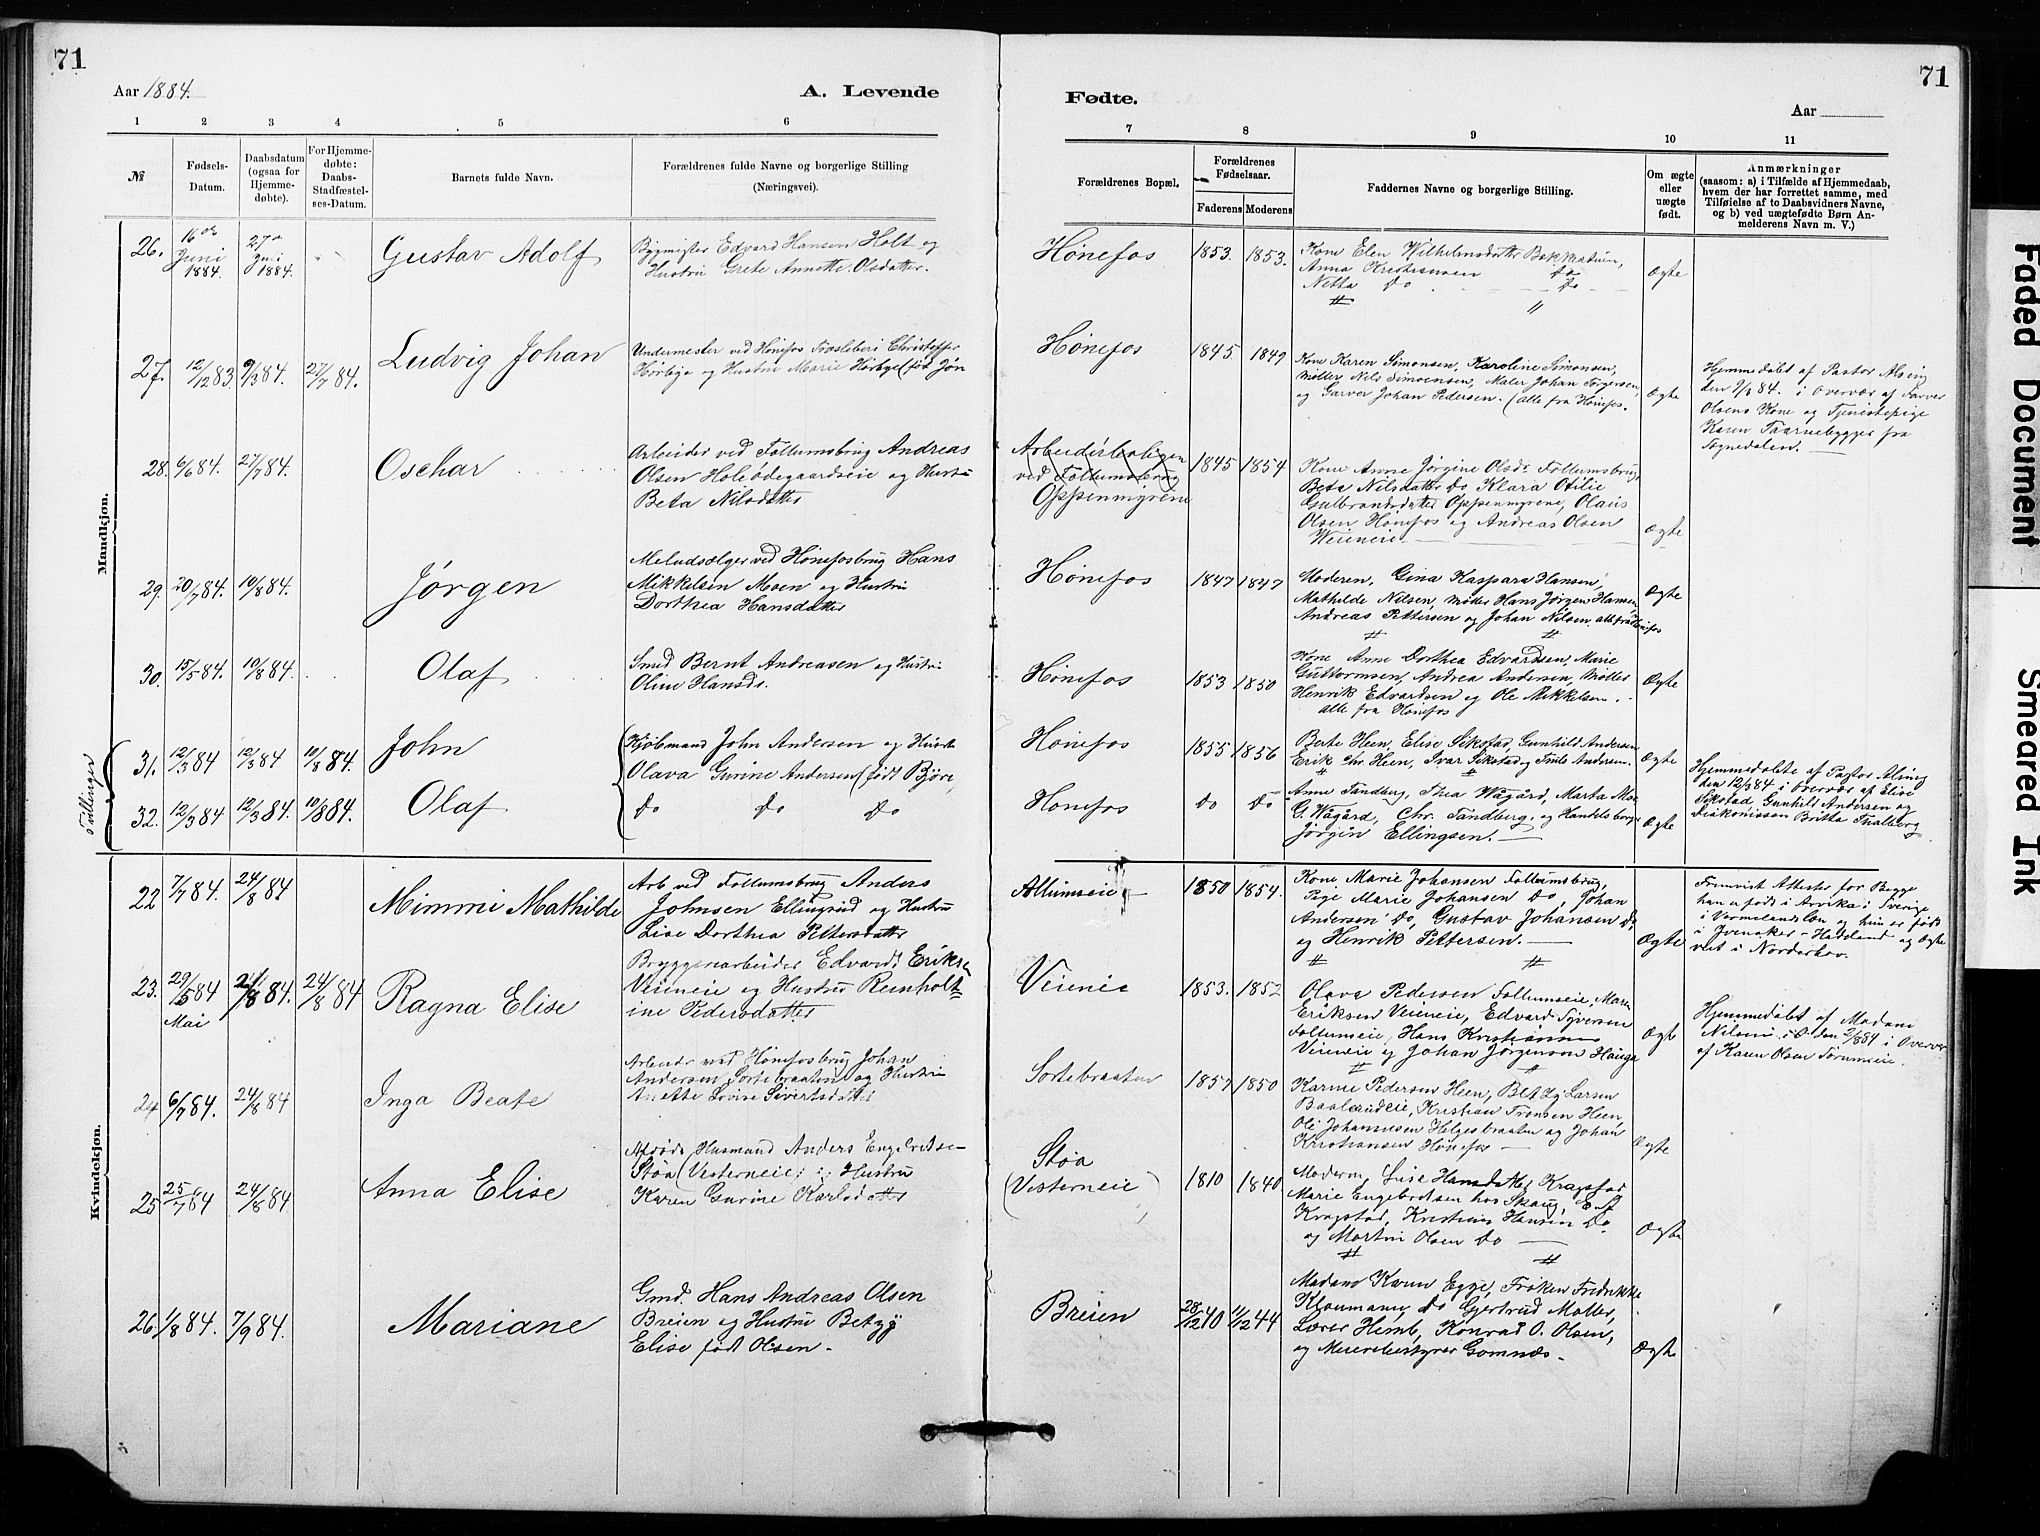 71
71
Aar 1884.
A. Levende
Fødte.
Aar
1 2 3 4 5 6 7 8 9 10 11
№
Fødsels-
Datum.
Daabsdatum
(ogsaa for
Hjemme-
døbte).
For Hjemme-
døbte:
Daabs-
Stadfæstel-
ses-Datum.
Barnets fulde Navn.
Forældrenes fulde Navne og borgerlige Stilling
(Næringsvei).
Forældrenes Bopæl.
Forældrenes
Fødselsaar.
Faderens Moderens
Faddernes Navne og borgerlige Stilling.
Om ægte
eller
uægte
født.
Anmærkninger
(saasom: a) i Tilfælde af Hjemmedaab,
hvem der har forrettet samme, med
Tilføielse af to Daabsvidners Navne,
og b) ved uægtefødte Børn An-
melderens Navn m. V.)
Mandkjøn.
26.
16de
Juni
1884.
27de
Juli
1884.
Gustav Adolf
Bygmester Edvard Hansen Holt og
Hustru Grete Annette Olsdatter.
Hønefos
1853. 1853.
Kone Elen Wilhelmsdatter
Anna Kristiansen Do
Netta Do Do
Ægte
27. 12/12 83. 9/3 84. 27/7 84.
Ludvig Johan
Undermester ved Hønefos Træsliberi Christoffer
Horbye og Hustru Marie Horbye (fød Jøn
Hønefos
1845 1849
Kone Karen Simonsen, Karoline Simonsen,
Møller Nils Simonsen, Maler Johan Jørgensen,
og Garver Johan Pedersen. (alle fra Hønefos.
Ægte
Hjemmedøbt af Pastor Alsing
den 9/3 84. i Overvær af Farver
Olsens Kone og Tjenestepige
Karen Taarnebygget fra
Sognedalen.
28. 6/6 84. 27/7 84.
Oschar
Arbeider ved Follumsbrug Andreas
Olsen Holeødegaardseie og Hustru
Beta Nilsdatter
Arbeiderboligen
ved Follumsbrug
Oppenmyrene
1845 1854
Kone Anne Jørgine Olsdr. Follumsbrug,
Beta Nilsdatter Do Klara Otilie
Gulbrandsdatter Oppenmyrene, Olaus
Olsen Hønefos og Andreas Olsen
Weieneie.
Ægte
29. 20/7 84. 10/8 84.
Jørgen
Meludsælger ved Hønefosbrug Hans
Mikkelsen Moen og Hustru
Dorthea Hansdatter
Hønefos
1847 1847
Moderen, Gina Kaspara Hansen,
Mathilde Nilsen, Møller Hans Jørgen Hansen,
Andreas Pettersen og Johan Nilsen. alle fra Hønefos
Ægte
30. 15/5 84. 10/8 84.
Olaf
Smed Bernt Andreasen og Hustru
Oline Hansdr.
Hønefos
1853 1850
Kone Anne Dorthea Edvardsen, Marie
Guttormsen, Andrea Andersen, Møller
Henrik Edvardsen og Ole Mikkelsen.
alle fra Hønefos
Ægte
Tvillinger
31. 12/3 84 12/3 84 10/8 84.
John
Kjøbmand John Andersen og Hustru
Olava Gurine Andersen (født Bjøre,
Hønefos
1855 1856
Berte Heen, Elise Sikstad, Gunhild Andersen
Erik Chr. Heen, Ivar Sikstad og Andersen.
Ægte
Hjemmedøbte af Pastor Alsing
den 12/3 84 i Overvær af Elise
Sikstad, Gunhild Andersen og
Diakonissen Britta Thalberg
32. 12/3 84 12/3 84. 10/8 84.
Olaf
Do Do Do
Hønefos
Do Do
Anne Tandberg, Thea Wagård, Marta Moe
G. Wagård, Chr. Tandberg, og Handelsborger
Jørgen Ellingsen.
Ægte
Kvindekjøn.
22 7/7 84. 24/8 84
Mimmi Mathilde
Arb ved Follumsbrug Anders
Johnsen Ellingsrud og Hustru
Lise Dorthea Pettersdatter
Follumseie
1850 1854.
Kone Marie Johansen Follumsbrug,
Pige Marie Johansen Do, Johan
Andersen Do, Gustav Johansen Do,
og Henrik Pettersen.
Ægte
Fremvist Attester for Begge
han er født i Arvika i Sverige
i Vermelandslæn og hun er født
i Jevnaker - Hadeland og Ægte
viet i Norderhov.
23. 29/5 84
Mai
24/8 84. 24/8 84
Ragna Elise
Bryggeriarbeider Edvard Eriksen
Veieneie og Hustru Reenholt-
ine Pedersdatter
Veieneie
1853. 1852
Olava Pedersen Follumseie, Maren
Eriksen Veieneie, Edvard Syversen
Follumseie, Hans Kristiansen
Veieneie og Johan Jørgensen Hauga
Ægte
Hjemmedøbt af Madam
Nilsen
i Overvær
af Karen Olsen
24 6/7 84. 24/8 84
Inga Beate
Arbeider ved Hønefosbrug Johan
Andersen Sortebraaten og Hustru
Anette Lovise Sivertsdatter
Sortebraaten
1857 1850
Karine Pedersen Heen, Betzy Larsen
Kristian Fransen Heen
Ole Johannesen Helgesbraaten og Johan
Kristiansen Hønefos
Ægte
25 25/7 84 24/8 84
Anna Elise
Afdøde Husmand Anders Engebretsen
Støa (Vesterneie) og Hustru
Karen Gurine Karlsdatter
Støa
(Vesterneie)
1810 1840
Moderen, Lise Hansdatter Kragstad
Marie Engebretsen hos Skaug, E. L
Kragstad, Kristian Hansen Do
og Martin Olsen Do
Ægte
26 1/8 84. 7/9 84.
Mariane
Gmd. Hans Andreas Olsen
Breien og Hustru Betzy
Elise født Olsen.
Breien
28/12 40 11/12 44
Madam Karen Egge, Frøken Fredrikke
Klaumann, Do Gjertrud Møller,
Lærer Hemb, Konrad O. Olsen,
og Meieribestyrer Gomnæs.
Ægte
Faded Document
Smeared Ink